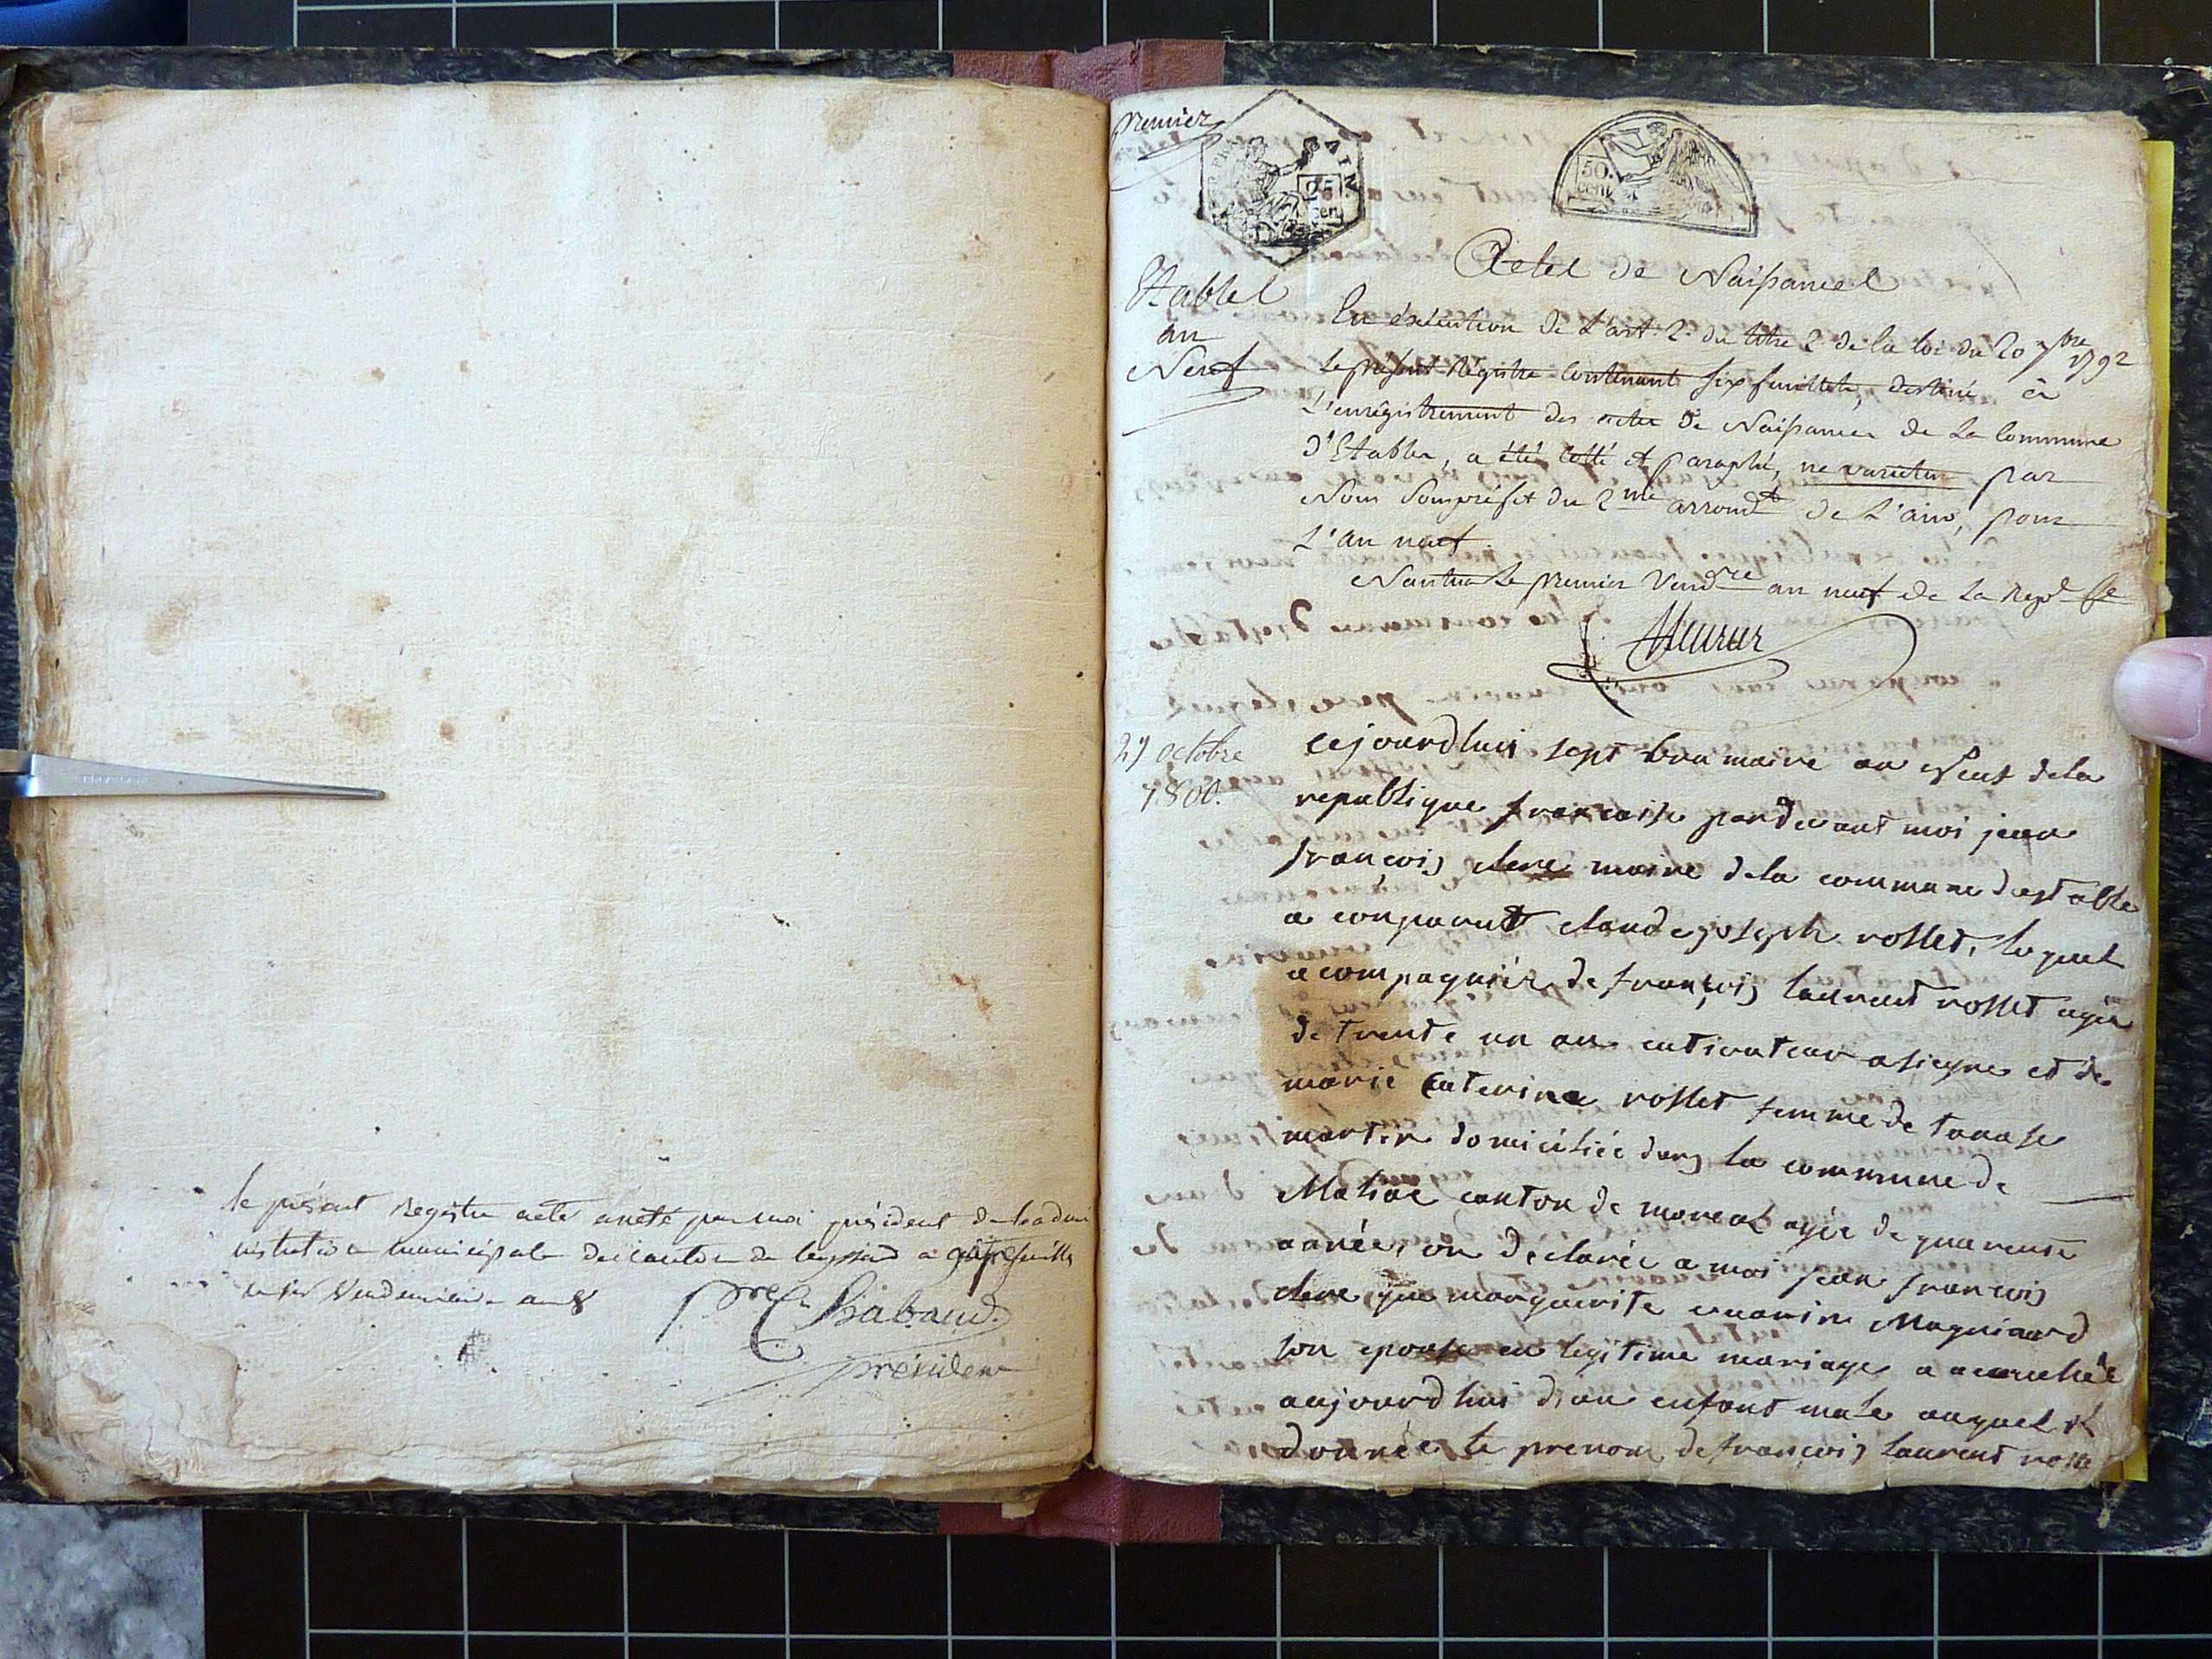 le présent Registre a été arrêté par moi président de l'admi
nistration municipale du canton de leyssard a quatre feuillets
le 1er Vendemiaire an 8
Chabaud
président
premier
25
cen
50.
cent
Etables
an
Neuf
Actes de Naissances
En éxécution de L'art. 2. du titre 2 de la loi du 20 7bre 1792
le présent Régistre contenant six feuillets, destiné à
L'enrégistrement des actes de Naissances de La Commune
D'Etables, a été cotté et paraphé, ne varietur par
Nous Souspréfet du 2me arrondt de L'ain, pour
L'an neuf.
Nantua Le premier Vendre an neuf de La Repd fse
27 octobre
1800.
Cejourdhui sept brumaire an Neuf dela
republique francaise pardevant moi jean
françois clere maire dela commune destable
a comparut claude joseph rosset, lequel
acompagniéz de françois laurent rosset agée
de trente un an cutivateur a siegne et de
marie Caterine rosset femme de tanase
martin domiciliée dans la commune de
Matiae canton de moreal agée de quarente
année, on declarée a moi jean francois
clere que marguerite evarin Magniard
son epouse en legitime mariage a acouchéé
aujourdhui d'un enfant male auquel il
donnée le prenom de françois laurent rosse